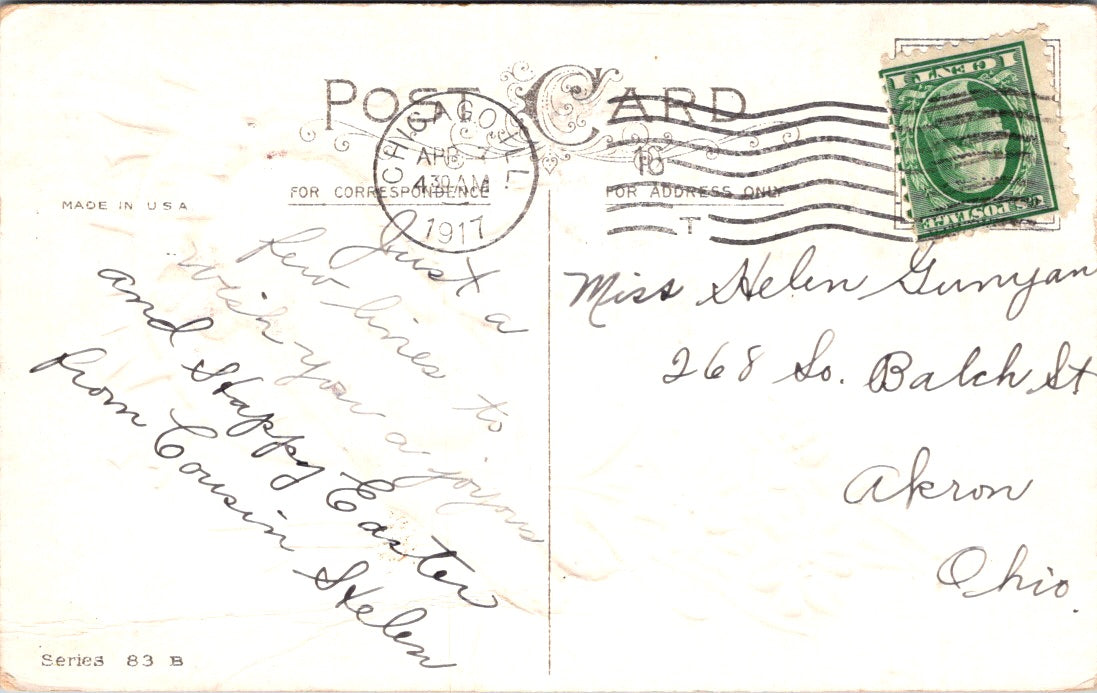 POST CARD
CHICAGO, ILL.
A
APR
4 30 AM
1917
16
T
ONE CENT
U.S. POSTAGE
FOR CORRESPONDENCE
FOR ADDRESS ONLY
MADE IN USA
Just a
few lines to
wish you a joyous
and Happy Easter
from Cousin Helen
Miss Helen Gunyan
268 So. Balch St
Akron
Ohio.
Series 83 B